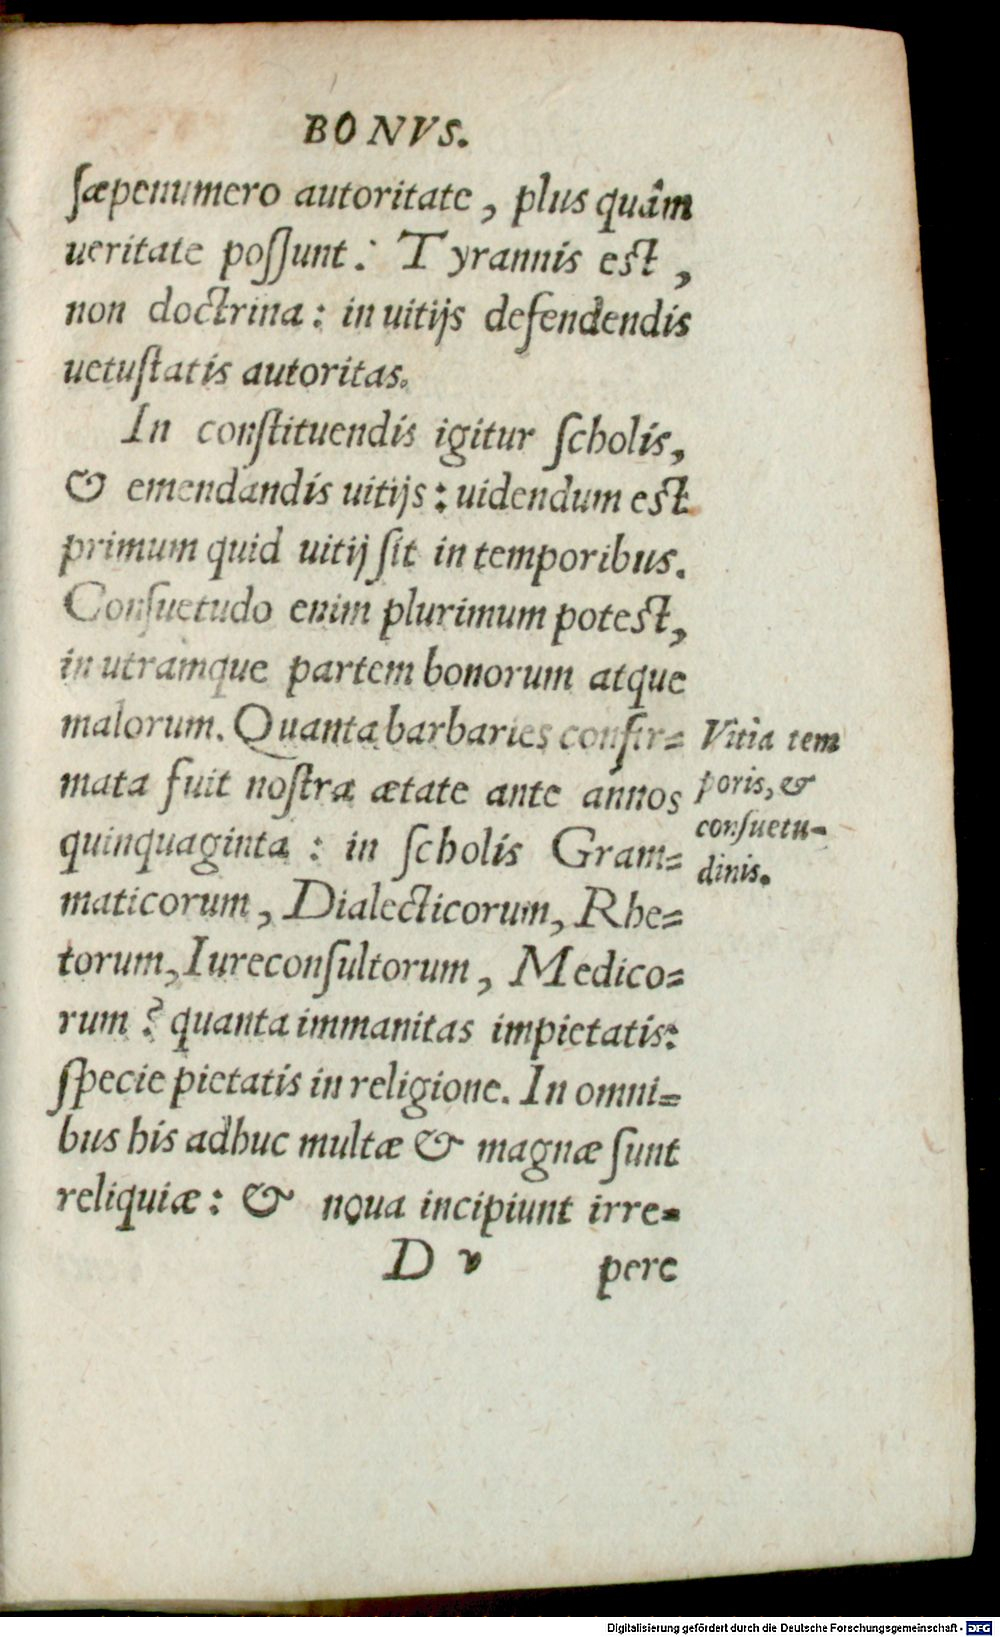 BONVS.
sæpenumero autoritate, plus quâm
ueritate possunt: Tyrannis est,
non doctrina: in uitijs defendendis
uetustatis autoritas.
In constituendis igitur scholis,
& emendandis uitijs: uidendum est
primum quid uitij sit in temporibus.
Consuetudo enim plurimum potest,
in utramque partem bonorum atque
malorum. Quanta barbaries confir=
mata fuit nostra ætate ante annos
quinquaginta: in scholis Gram=
maticorum, Dialecticorum, Rhe=
torum, Iureconsultorum, Medico=
rum? quanta immanitas impietatis:
specie pietatis in religione. In omni=
bus his adhuc multæ & magnæ sunt
reliquiæ: & noua incipiunt irre=
D v pere
Vitia tem
poris, &
consuetu=
dinis.
Digitalisierung gefördert durch die Deutsche Forschungsgemeinschaft - DFG